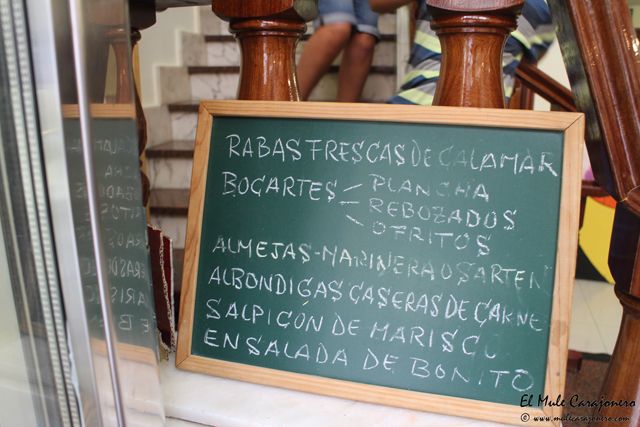 RABAS FRESCAS DE CALAMAR
BOCARTES PLANCHA
REBOZADOS
O FRITOS
ALMEJAS-MARINERA O SARTEN
ALBONDIGAS CASERAS DE CARNE
SALPICON DE MARISCO
ENSALADA DE BONITO
El Mule Carajonero
© www.mulecarajonero.com